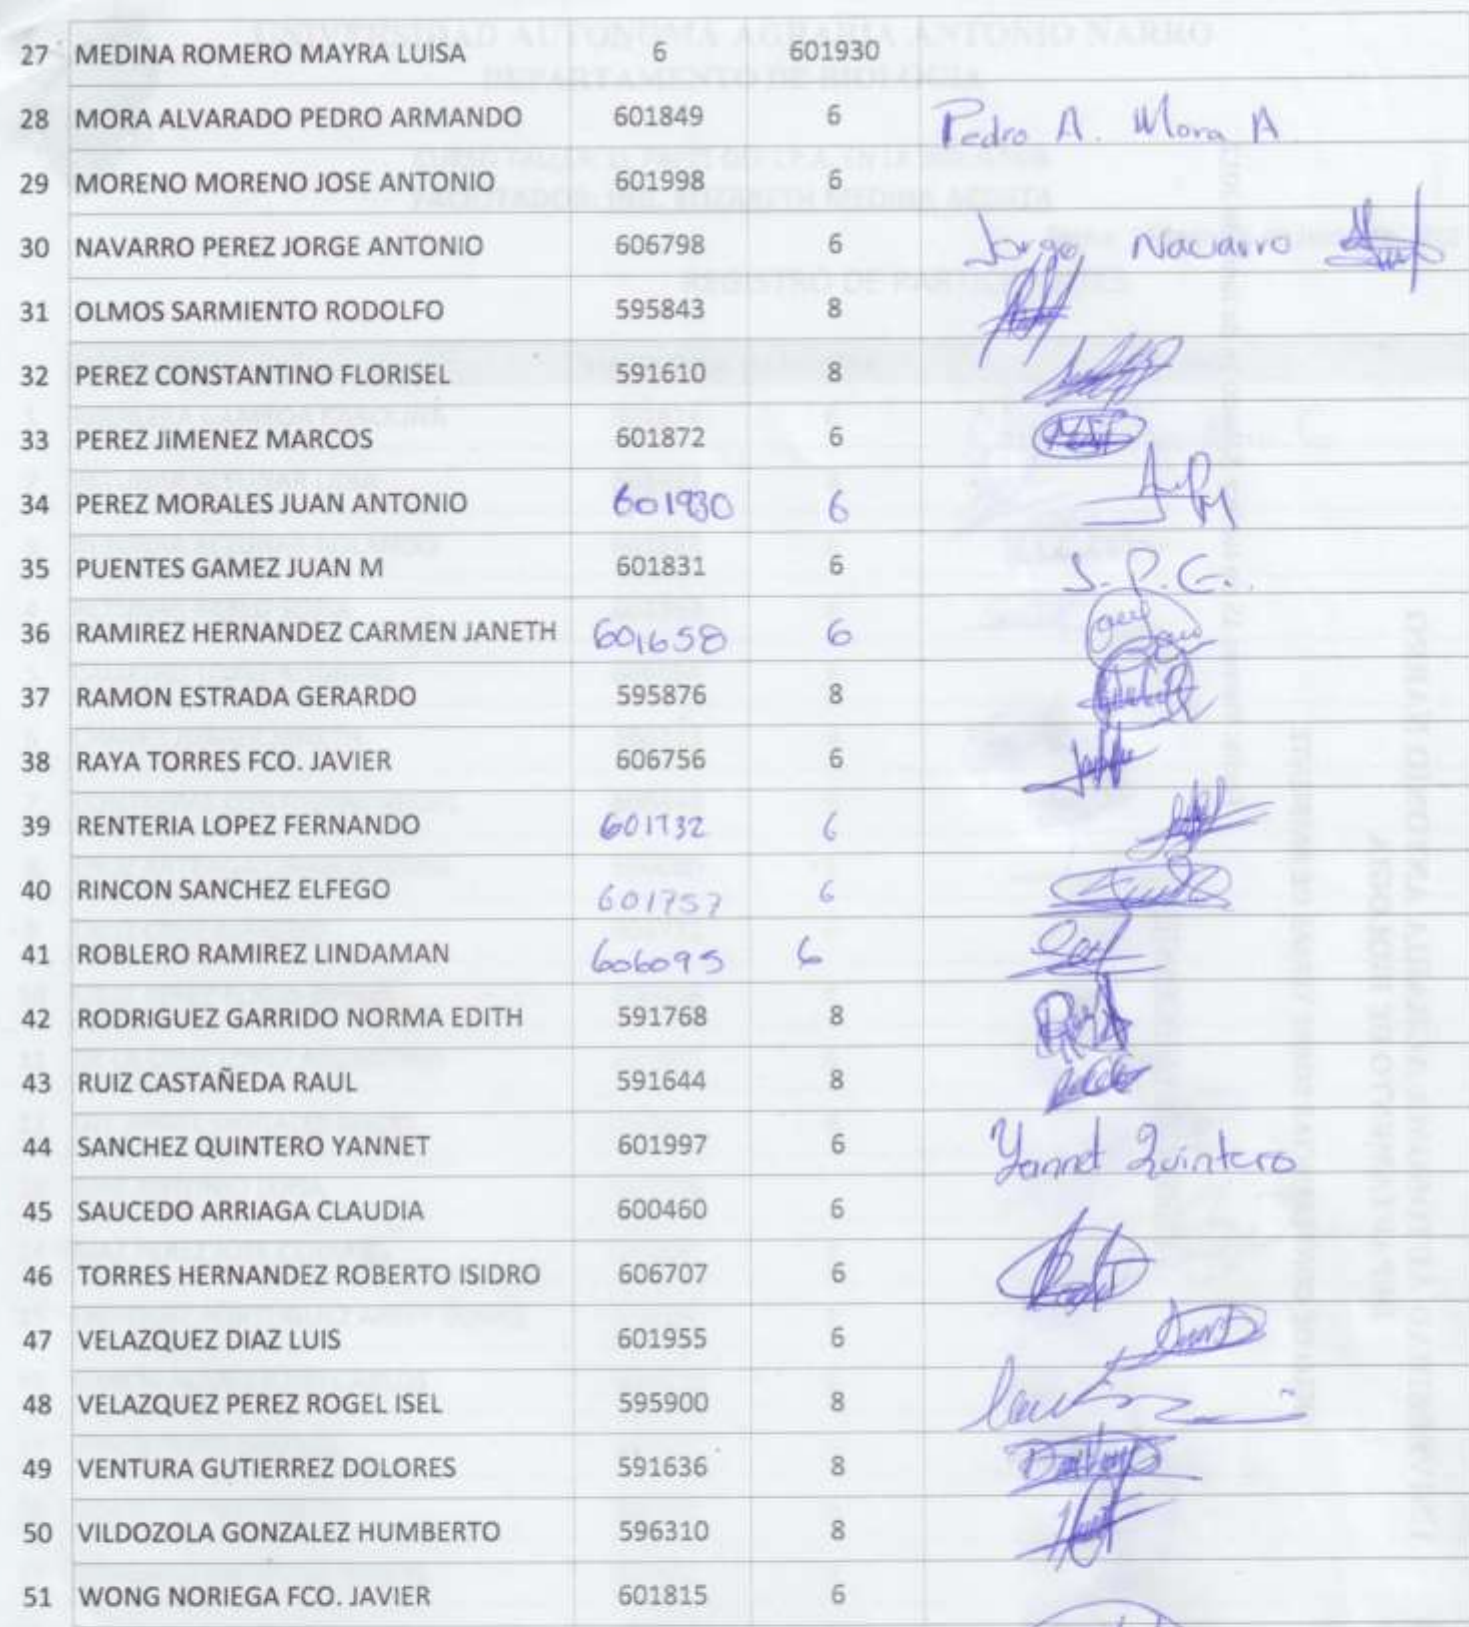 27 MEDINA ROMERO MAYRA LUISA 6 601930
28 MORA ALVARADO PEDRO ARMANDO 601849 6 Pedro A. Mora A.
29 MORENO MORENO JOSE ANTONIO 601998 6
30 NAVARRO PEREZ JORGE ANTONIO 606798 6 Jorge Navarro
31 OLMOS SARMIENTO RODOLFO 595843 8
32 PEREZ CONSTANTINO FLORISEL 591610 8
33 PEREZ JIMENEZ MARCOS 601872 6
34 PEREZ MORALES JUAN ANTONIO 601930 6
35 PUENTES GAMEZ JUAN M 601831 6 J. P. G.
36 RAMIREZ HERNANDEZ CARMEN JANETH 601658 6
37 RAMON ESTRADA GERARDO 595876 8
38 RAYA TORRES FCO. JAVIER 606756 6
39 RENTERIA LOPEZ FERNANDO 601732 6
40 RINCON SANCHEZ ELFEGO 601757 6
41 ROBLERO RAMIREZ LINDAMAN 606095 6
42 RODRIGUEZ GARRIDO NORMA EDITH 591768 8
43 RUIZ CASTAÑEDA RAUL 591644 8
44 SANCHEZ QUINTERO YANNET 601997 6 Yannet Quintero
45 SAUCEDO ARRIAGA CLAUDIA 600460 6
46 TORRES HERNANDEZ ROBERTO ISIDRO 606707 6
47 VELAZQUEZ DIAZ LUIS 601955 6
48 VELAZQUEZ PEREZ ROGEL ISEL 595900 8
49 VENTURA GUTIERREZ DOLORES 591636 8
50 VILDOZOLA GONZALEZ HUMBERTO 596310 8
51 WONG NORIEGA FCO. JAVIER 601815 6